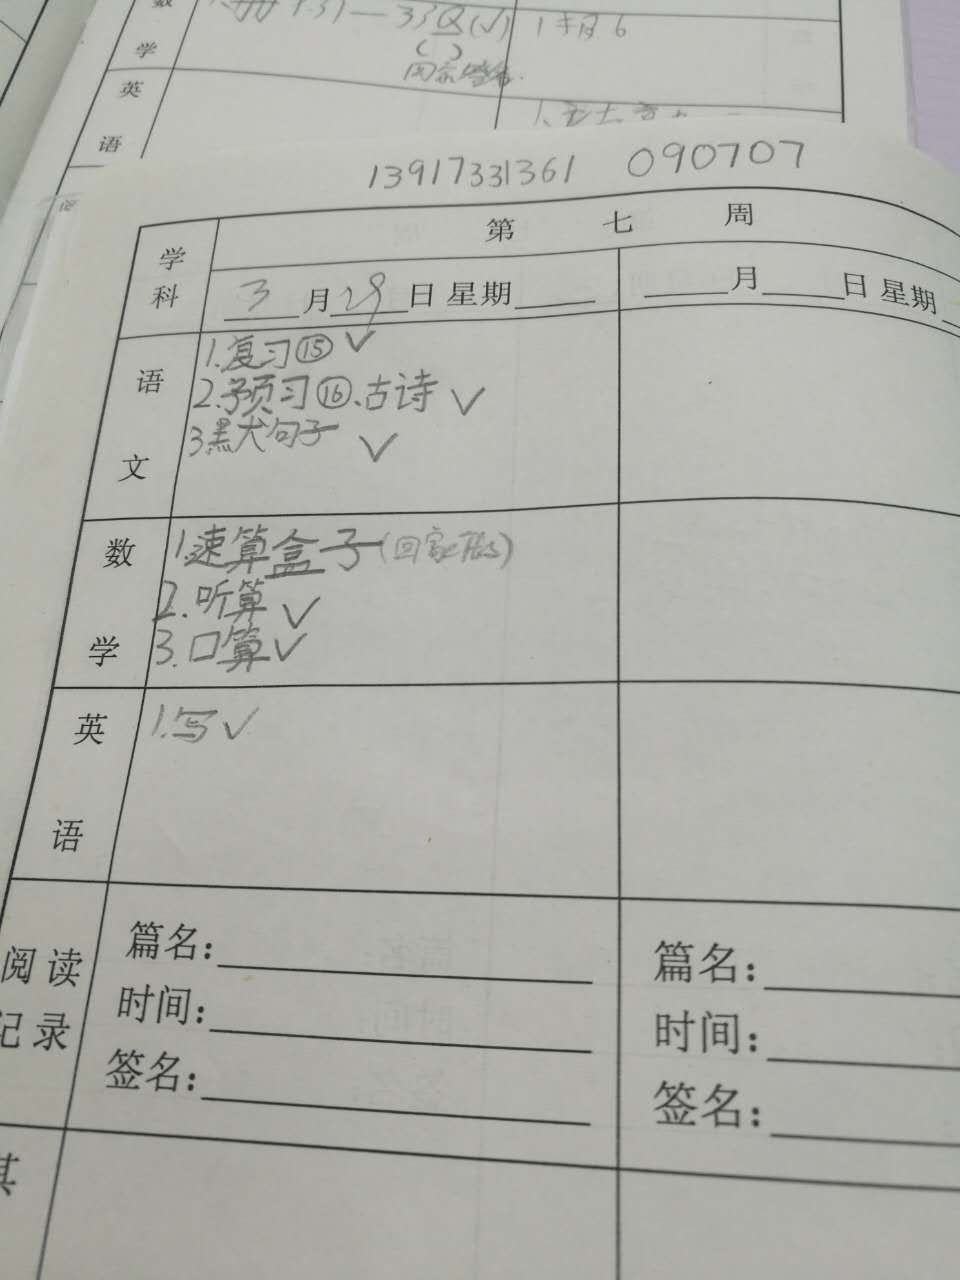 数
学
英
语
13917331361 090707
第 七 周
学科
3月29日星期____ ____月____日星期__
语文
1.复习⑮✓
2.预习⑯、古诗✓
3.黑犬句子✓
数学
1.速算盒子(回家版)
2.听算✓
3.口算✓
英语
1.写✓
阅读记录
篇名: 篇名:
时间: 时间:
签名: 签名:
其